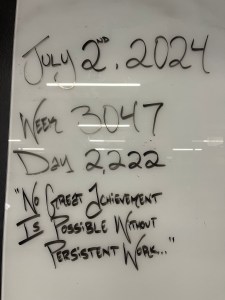 July 2ND, 2024
Week 3047
Day 2,222
"No Great Achievement
Is Possible Without
Persistent Work..."